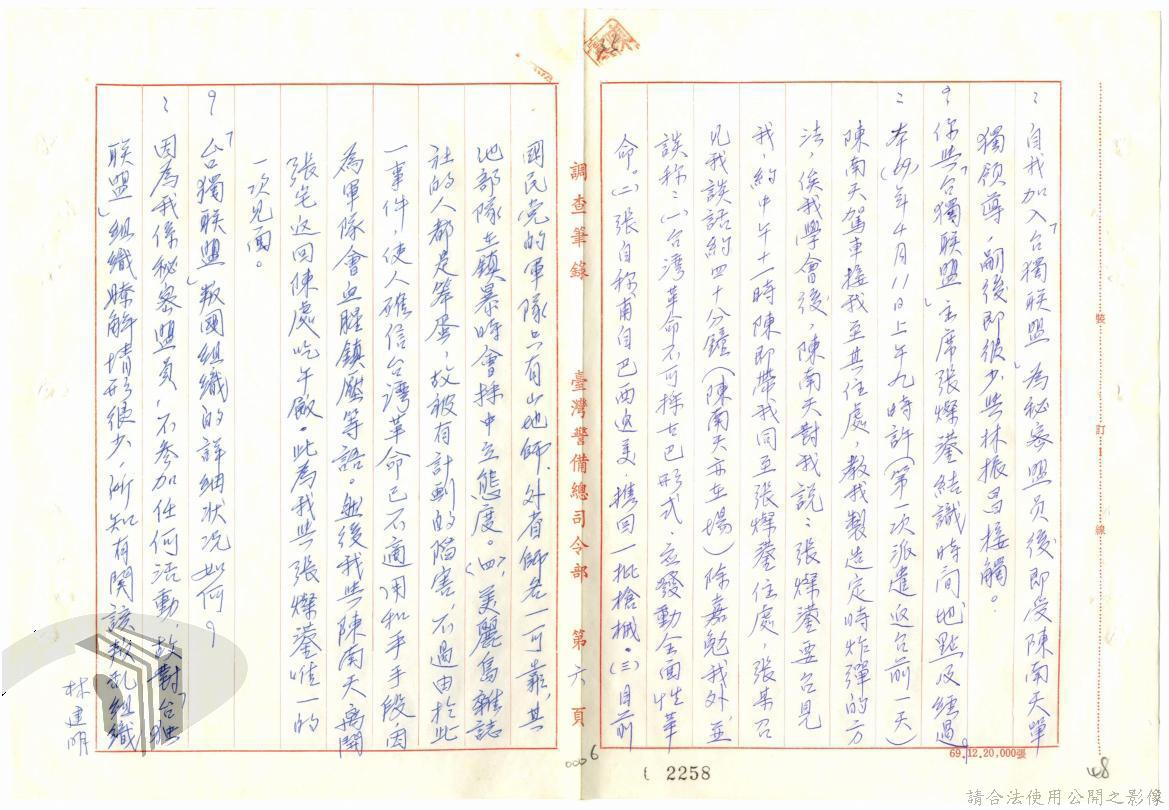 ：自我加入「台獨联盟」為秘密盟员後即受陳南天單
獨領導，嗣後即很少與林振昌接觸。
？你與「台獨联盟」主席張燦鍙結識時间地點及經過？
：本(69)年4月11日上午九時許（第一次派遣返台前一天）
陳南天駕車接我至其住處，教我製造定時炸彈的方
法，俟我學會後，陳南天對我説：張燦鍙要召見
我，約中午十一時陳即帶我同至張燦鍙住處，張某召
見我談話約四十分鐘（陳南天亦在場）除嘉勉我外並
談称：(一)台湾革命不可採古巴形式，应發動全面性革
命。(二)張自称甫自巴西返美，携回一批槍械。(三)目前
國民党的軍隊只有山地師、外省師各一可靠，其
他部隊在鎮暴時會採中立態度。(四)、美麗島雜誌
社的人都是笨蛋，故被有計劃的陷害，不過由於此
一事件，使人確信台湾革命已不適用和平手段，因
為軍隊會血腥鎮壓等語。無後我與陳南天离開
張宅返回陳處吃午飯。此為我與張燦鍙唯一的
一次見面。
？「台獨联盟」叛國組織的詳細狀况如何？
：因為我係秘密盟員，不參加任何活動，故對「台独
联盟」組織瞭解情形很少，所知有関該叛乱組織
林建明
調查筆錄
臺灣警備總司令部
第六頁
裝
訂
線
69.12.20,000張
0006
2258
48
請合法使用公開之影像